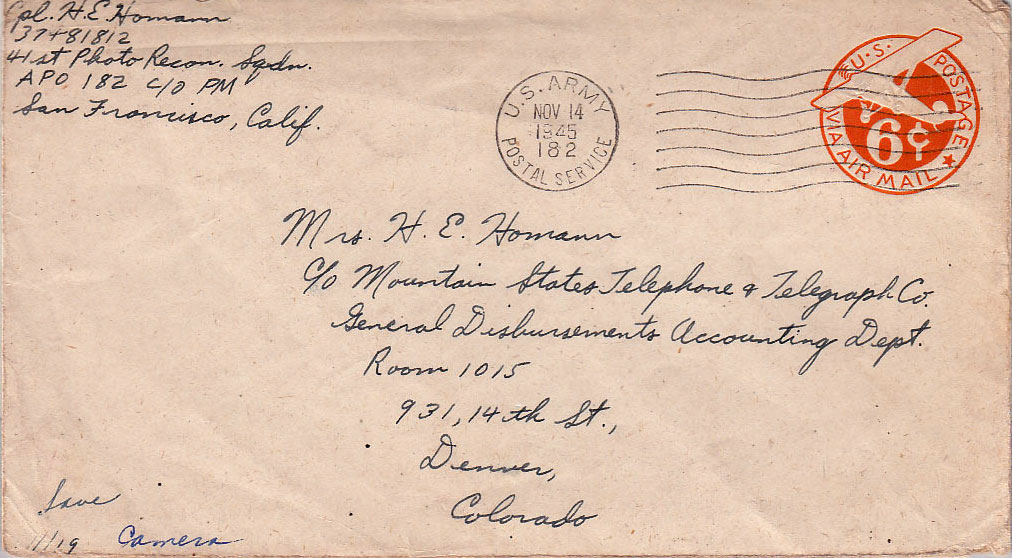 Cpl. H.E. Homann
37481812
41st Photo Recon. Sqdn.
APO 182 c/o PM
San Francisco, Calif.
U.S. ARMY
NOV 14
1945
182
POSTAL SERVICE
U.S. POSTAGE
6¢
VIA AIR MAIL
Mrs. H. E. Homann
c/o Mountain States Telephone & Telegraph Co.
General Disbursements Accounting Dept.
Room 1015
931, 14th St.,
Denver,
Colorado
Save
11/19 Camera